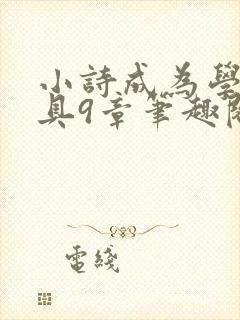 小詩成為學
具9章筆趣閱
電綫